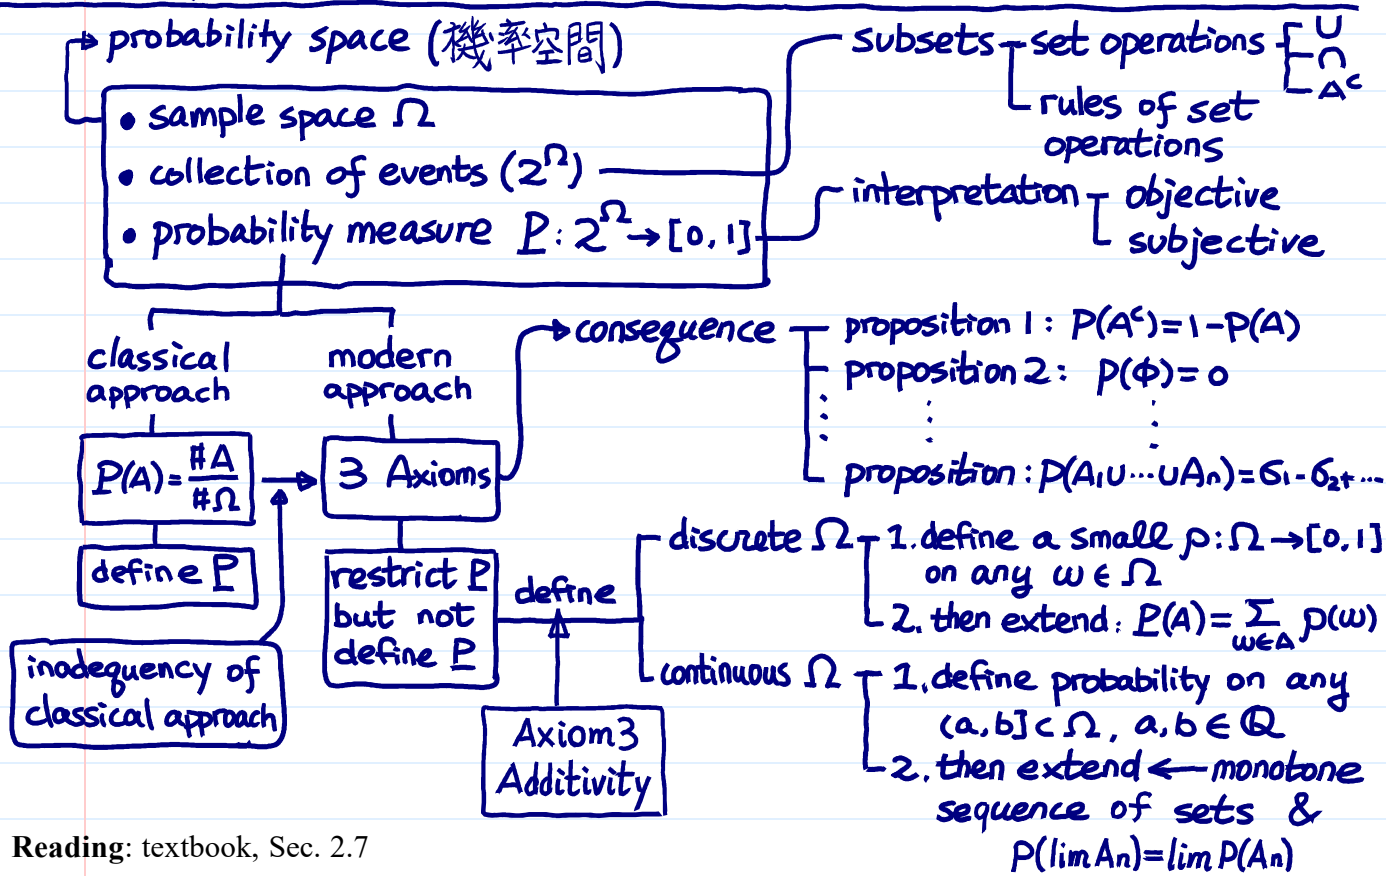 probability space (機率空間)
• sample space Ω
• collection of events (2^Ω)
• probability measure P: 2^Ω → [0, 1]
subsets
set operations
∪
∩
A^c
rules of set
operations
interpretation
objective
subjective
classical
approach
P(A) = #A / #Ω
define P
inadequency of
classical approach
modern
approach
3 Axioms
restrict P
but not
define P
consequence
proposition 1: P(A^c) = 1 - P(A)
proposition 2: P(ϕ) = 0
proposition: P(A₁∪⋯∪Aₙ) = σ₁ - σ₂+ ⋯
define
Axiom3
Additivity
discrete Ω
1. define a small p: Ω → [0, 1]
on any ω ∈ Ω
2. then extend: P(A) = Σ_{ω∈A} p(ω)
continuous Ω
1. define probability on any
(a, b] ⊂ Ω, a, b ∈ Q
2. then extend ← monotone
sequence of sets &
P(lim Aₙ) = lim P(Aₙ)
Reading: textbook, Sec. 2.7